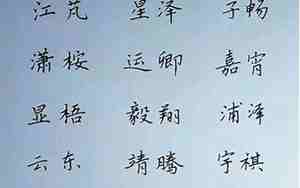 江芃 星泽 子畅
潇桉 运卿 嘉宵
显梧 毅翔 浦泽
云东 靖腾 宇祺